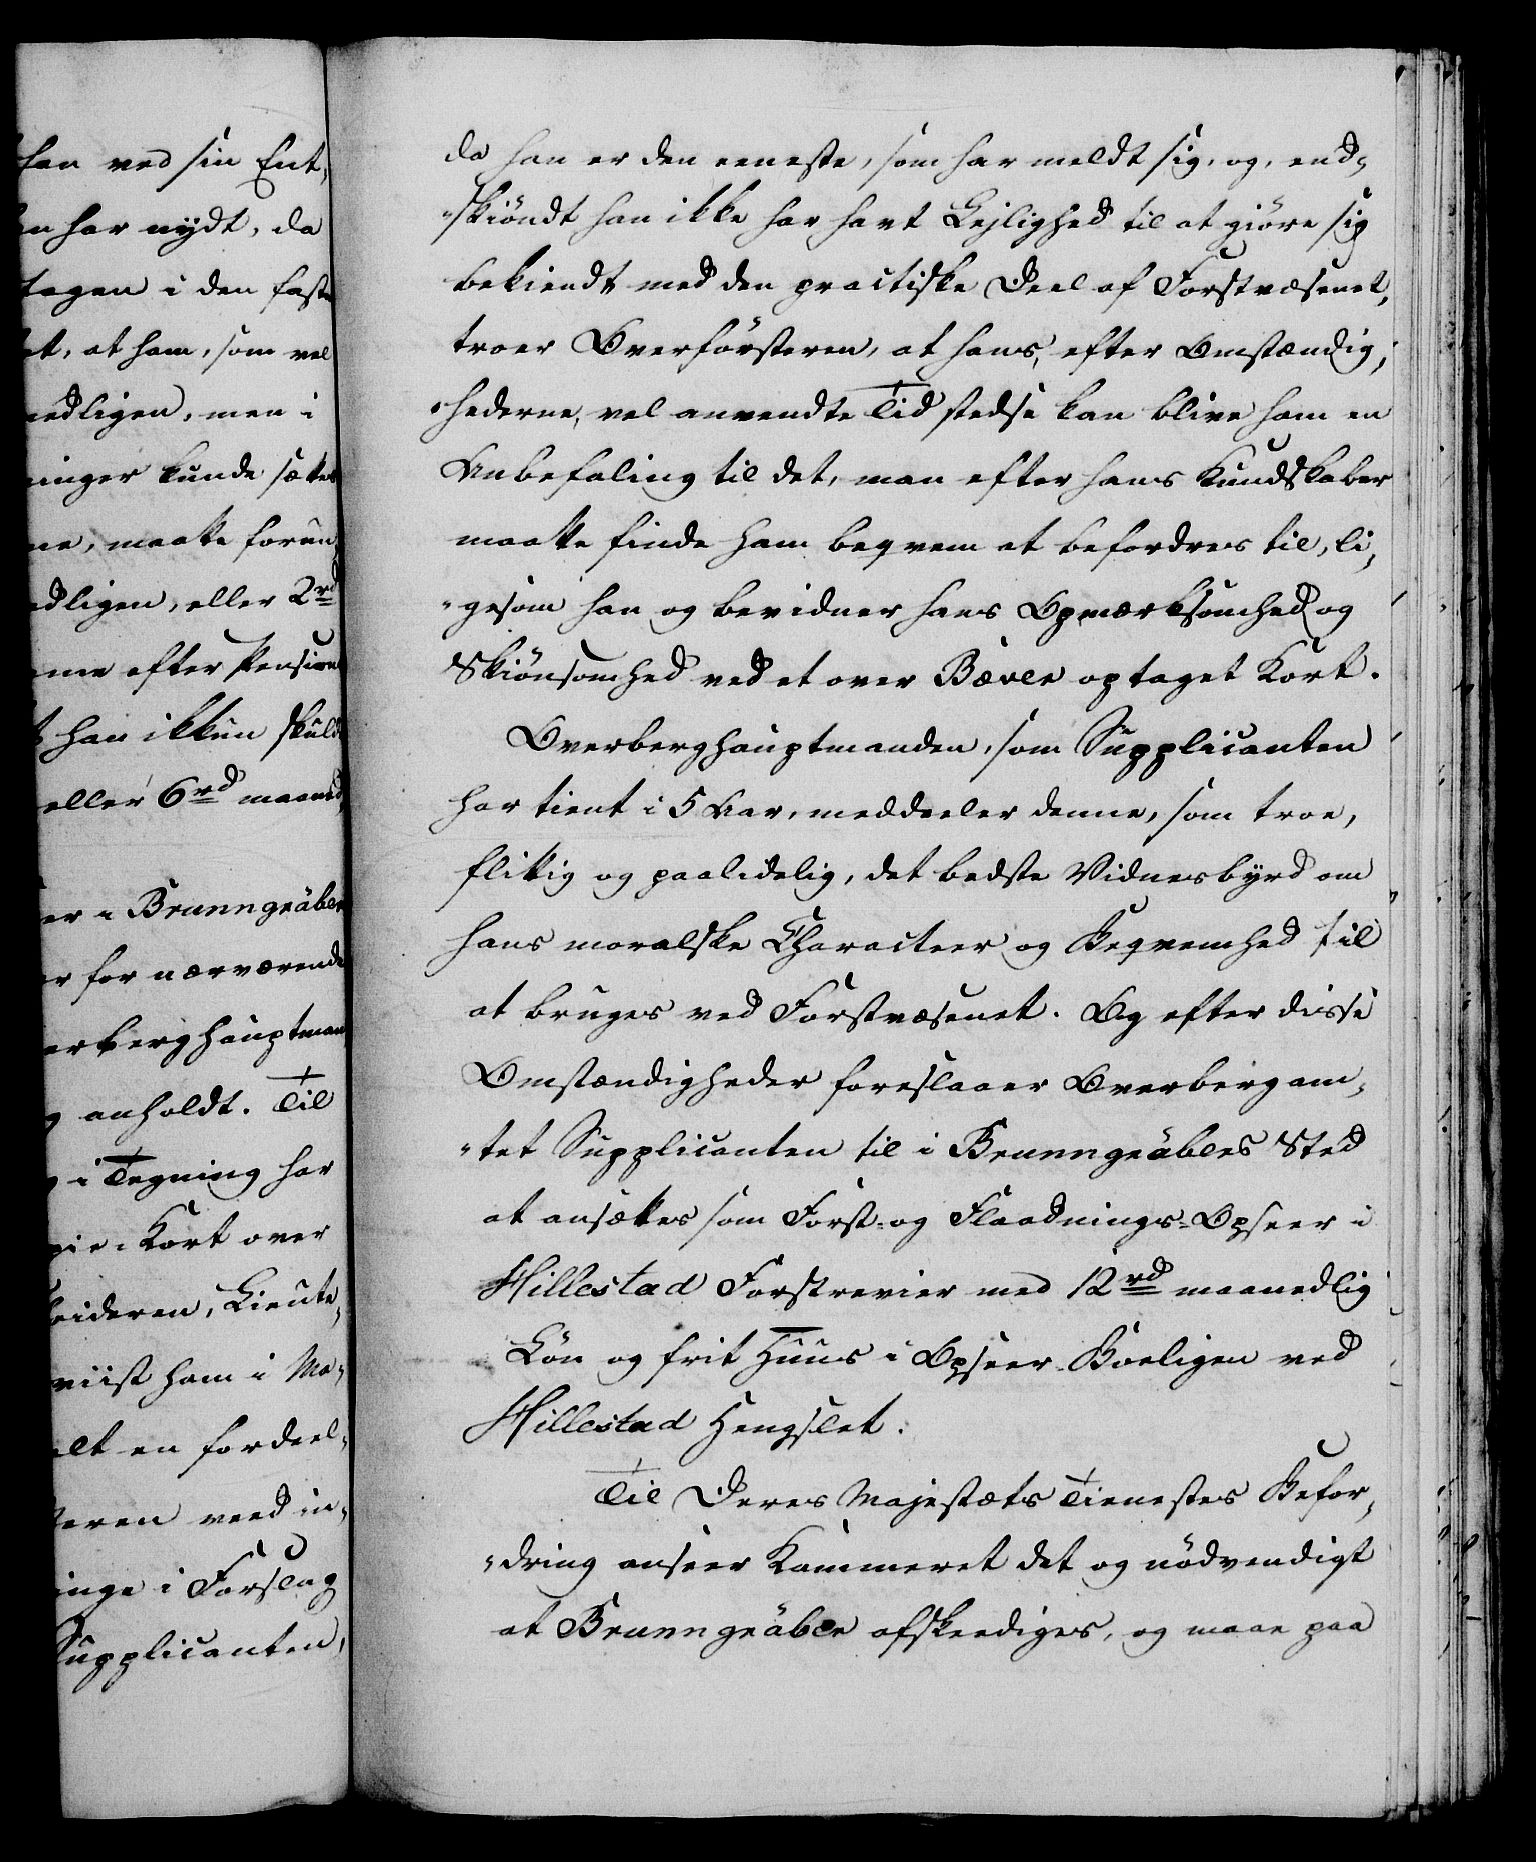 han ved sin Ent-
har nydt, da
tagen i den faste
at, at ham, som vel
nedligen, men i
ninger kunde sættes
ne, maatte forun
edligen, eller 2rd
me efter Pensions
han ikkun skuld
eller 6rd maaned
er Brunngräber
er for nærværende
erberghauptman
anholdt. Til
i Tegning har
pie. Kort over
beideren, Lieute-
viist ham i Ma-
elt en fordeel-
eren veed in-
inge i Forslag
Supplicanten,
da han er den eeneste, som har meldt sig, og, end-
skiöndt han ikke har havt Lejlighed til at giöre sig
bekiendt med den practiske Deel af Forstvæsenet,
troer Overförsteren, at hans, efter Omstændig-
hederne, vel anvendte Tid stedse kan blive ham en
Anbefaling til det, man efter hans Kundskaber
maatte finde ham beqvem at befordres til, li-
gesom han og bevidner hans Opmærksomhed og
Skiönsomhed ved et over Bæver optaget Kort.
Overberghauptmanden, som Supplicanten
har tient i 5 Aar, meddeeler denne, som troe,
flittig og paalidelig, det bedste Vidnesbyrd om
hans moralske Characteer og Beqvemhed til
at bruges ved Forstvæsenet. Og efter disse
Omstændigheder foreslaaer Overbergam-
tet Supplicanten til i Brunngräbers Sted
at ansættes som Forst- og Flaadnings-Opseer i
Hillestad Forstrevier med 12rd maanedlig
Lön og frit Huus i Opseer Boeligen ved
Hillestad Hengslet.
Til Deres Majestæts Tienestes Befor-
dring anseer Kammeret det og nödvendigt
at Brunngräber afskeediges, og maae paa